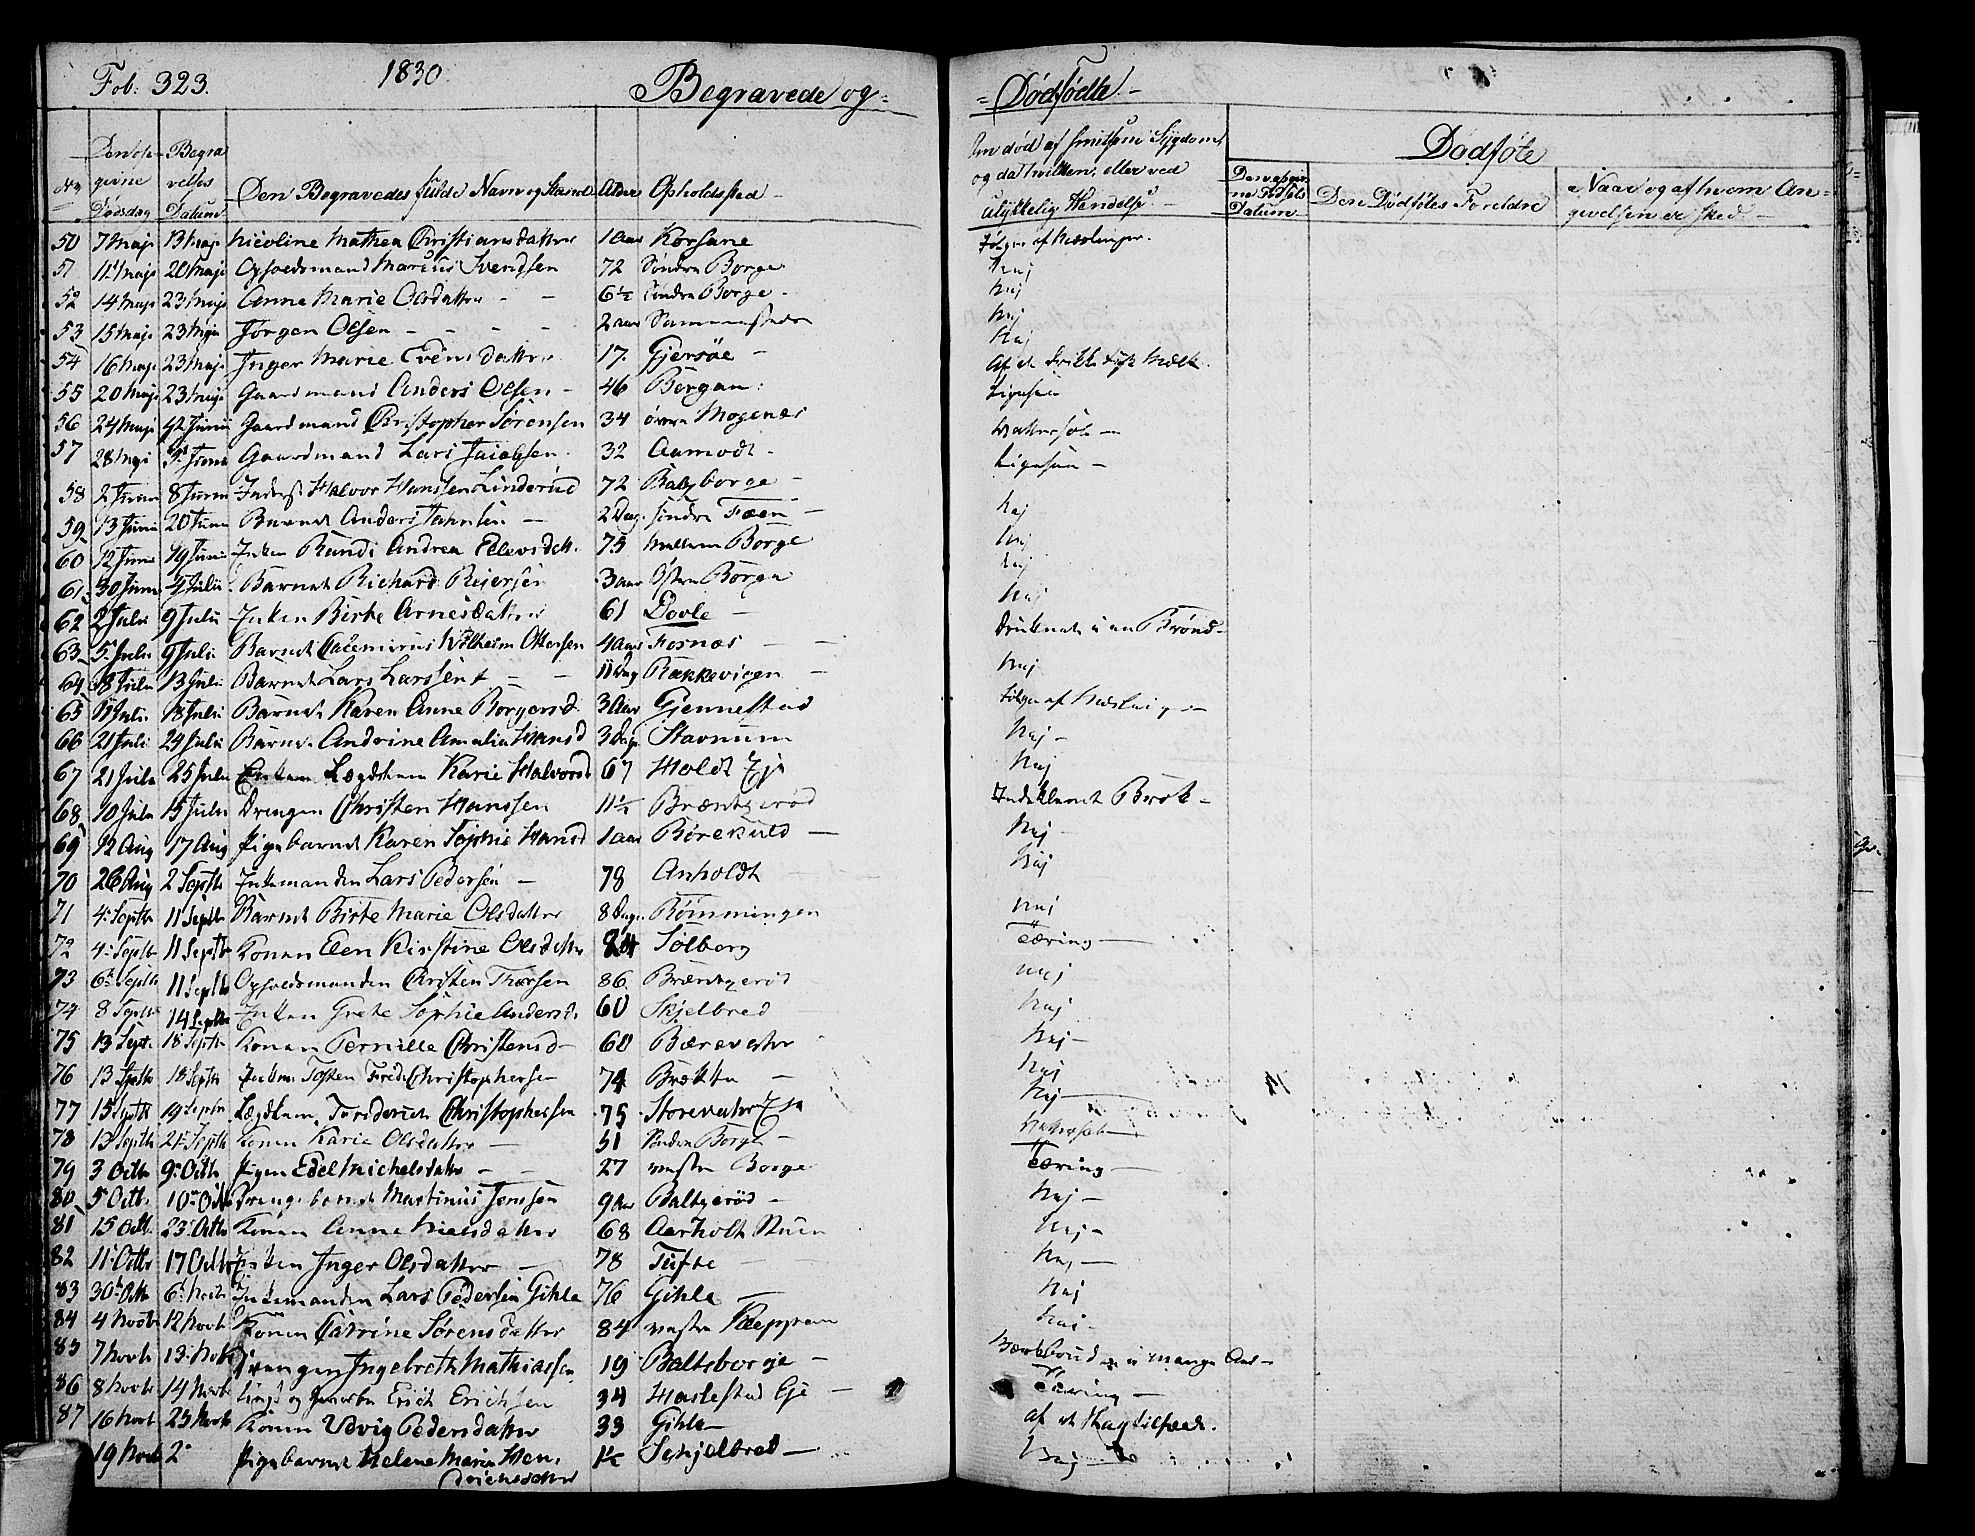 Fol: 323.
1830
Begravede og
Dødfødte
No
Den op-givne Dødsdag
Begravelses Datum
Den Begravedes fulde Navn og Stand
Alder
Opholdssted
Om død af smitsom Sygdom
og da hvilken, eller ved
ulykkelig Hændelse
Dødføte
Datum
Den Dødfötes Foreldre
Naar og af hvem An-
givelsen er sked
50 7 Maji 13 Maji Nicoline Mathea Christiansdatter 1 Aar Korsane Følger af Mæslinger.
51 11 Maji 20 Maji Opsoedsmand Marcus Svendsen 72 Søndre Borge Nej
52 14 Maji 23 Maji Anne Marie Olsdatter 6½ Søndre Borge Nej
53 15 Maji 23 Maji Jørgen Olsen 2 Aar Sammesteds Nej
54 16 Maji 23 Maji Inger Marie Evensdatter 17. Gjersöe Nej
55 20 Maji 23 Maji Gaardmand Anders Olsen 46 Borgan Af at drikke Melk
56 24 Maji Junii Gaardmand Christopher Sörensen 34 övre Mogenæs
57 28 Maji Junii Gaardmand Lars Jacobsen 32 Aamodt Vattersot
58 2 Junii 8 Junii Inderst Halvor Hanssen Linderud 72 Baltzborge
59 13 Junii 20 Junii Barnet Anders 2 Dag. Söndre Föen Nej
60 12 Junii 19 Junii Enken Randi Andrea Ellevsdatt. 75 Mellem Borge Nej
61 30 Junii 4 Julii Barnet Richard Reiersen 3 Aar Østre Borge Nej
62 2 Julii 9 Julii Enken Birte Arnesdatter 61 Dovle Nej
63 5 Julii 9 Julii Barnet Casemirus Wilhelm Ottersen 4 Aar Fornæs Druknet i en Brönd
64 8 Julii 13 Julii Barnet Lars Larssen 11 Dag Rakkevigen Nej
65 11 Julii 18 Julii Barnet Karen Anne Borgersd. 3 Aar Gjennestad Følge af Mæsling
66 21 Julii 24 Julii Barnet Andrine Amalia Hansd 3 Dage Stavnum Nej
67 21 Julii 25 Julii Enken Lægdslem Karie Halvorsd 67 Holdt Eje Nej
68 10 Julii 15 Julii Drengen Christen Hanssen 11½ Bræntzerød Indeklemt Brok
69 12 Aug 17 Aug Pigebarnet Karen Sophie Hansd 1 Aar Börekuld Nej
70 26 Aug 2 Septbr Enkemanden Lars Pedersen 78 Anholdt Nej
71 4 Septbr 11 Septbr Barnet Birte Marie Olsdatter 8 Dage Römmingen Nej
72 4 Septbr 11 Septbr Konen Elen Kirstine Olsdatter 84 Solberg Tæring
73 6 Septbr 11 Septbr Opsoedsmanden Christen Thorsen 86. Bræntzeröd Nej
74 8 Septbr 14 Septbr Enken Grete Sophie Andersd. 60 Skjelbred Nej
75 13 Sept. 18 Septbr Konen Pernille Christensd 60 Bærevester Nej
76 13 Septbr 18 Septbr Christophersen 74 Brække Nej
77 15 Septbr 19 Septbr Lægdslem Christophersen 75 Storevester Eje Nej
78 13 Septbr 21 Septbr Konen Karie Olsdatter 51 Søndre Borge Vattersot
79 3 Octb 9 Octb Pigen Edel Michelsdatter 27 Vestre Borge Tæring
80 5 Octb. 10 Octb Drengebarnet Martinus Jenssen 9 Aar Baltzeröd Nej
81 15 Octb. 23 Octb Konen Anne Nielsdatter 68 Aarholt Stuen Nej
82 11 Octbr 17 Octbr Enken Inger Olsdatter 78 Tufte Nej
83 30 Octb 6 Novbr Enkemanden Lars Pedersen Gihle 76 Gihle Nej
84 4 Novbr 12 Novbr Konen Catrine Sörensdatter 84 Vestre Nej
85 7 Novbr 13 Novbr Drengen Ingebreth Mathiassen 19 Baltsborge i mange Aar
86 8 Novbr 14 Novbr Erich Erichsen 34 Haslestad Eje Tæring
87 16 Novbr 25 Novbr Konen Udvig Pedersdatter 33 Gihle af et Slagtilfæld.
19 Novbr 2 Pigebarnet Helene Marie Hen-
drichsdatter 1½ Schjelbred Nej